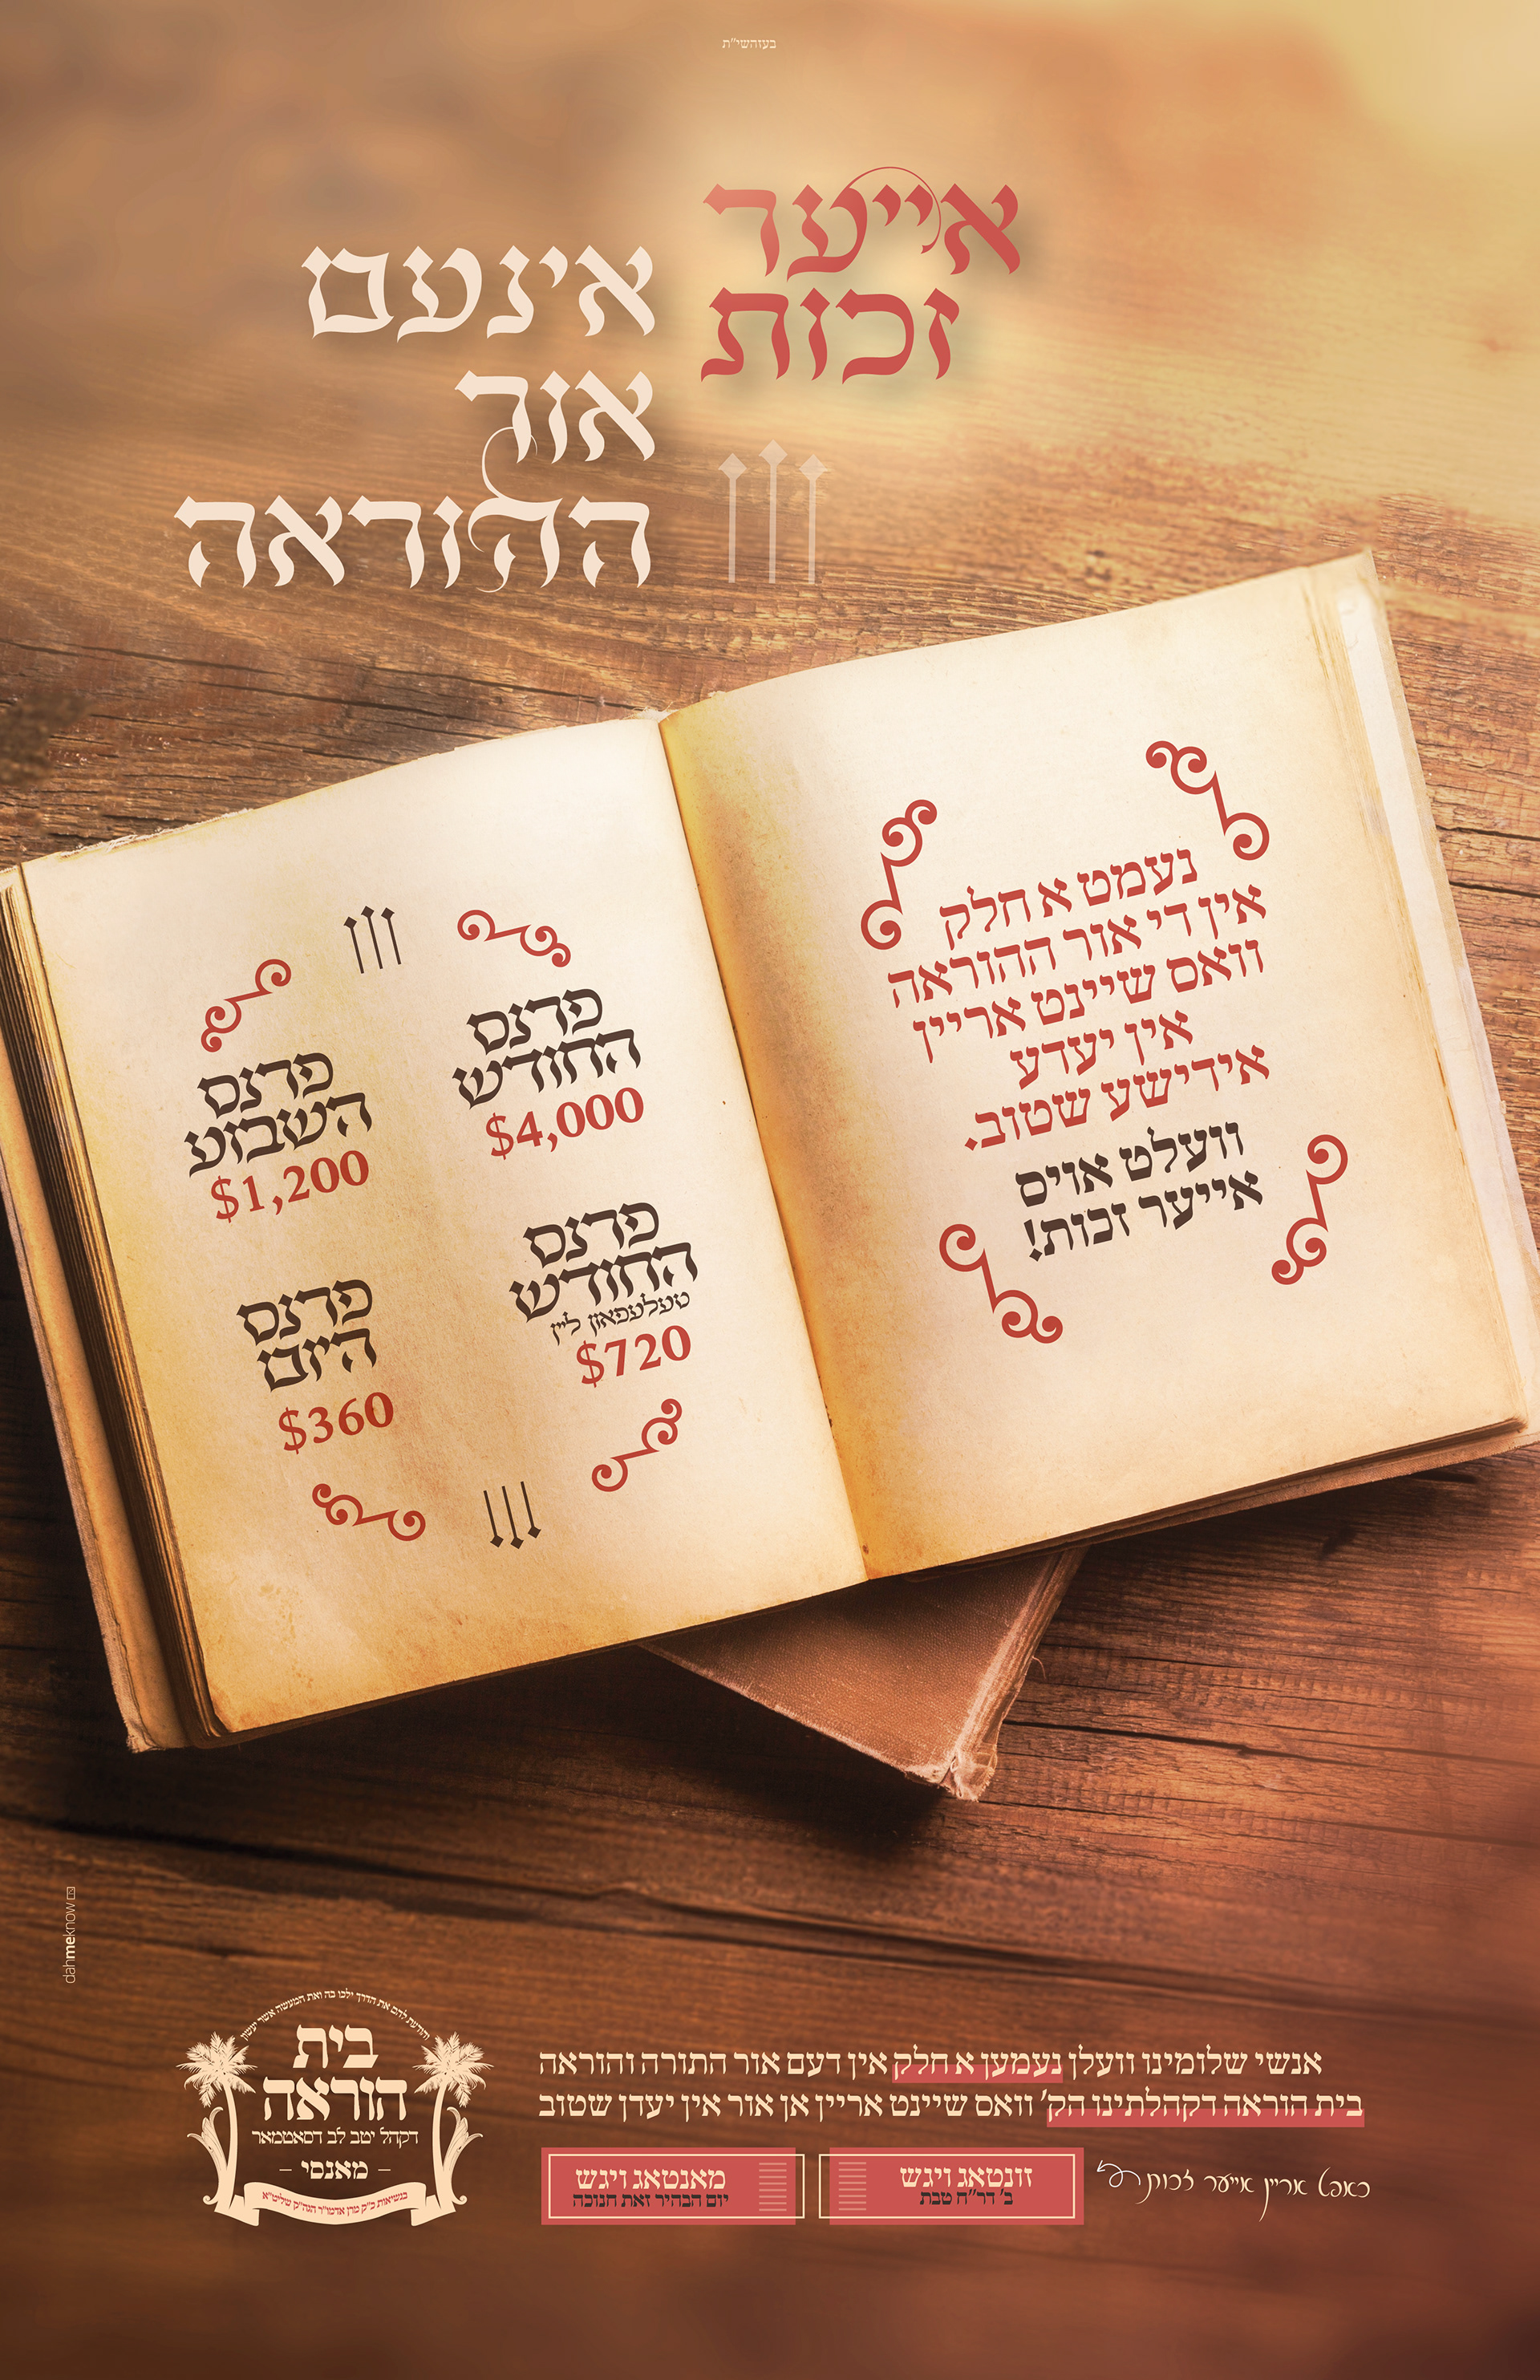 בעזהשי"ת
אייער
זכות
אינעם
אור
ההוראה
נעמט א חלק
אין די אור ההוראה
וואס שיינט אריין
אין יעדע
אידישע שטוב.
וועלט אויס
אייער זכות!
פרנס
החודש
$4,000
פרנס
השבוע
$1,200
פרנס
החודש
טעלעפאון ליין
$720
פרנס
היום
$360
dahmeknow
אנשי שלומינו וועלן נעמען א חלק אין דעם אור התורה והוראה
בית הוראה דקהלתינו הק' וואס שיינט אריין אן אור אין יעדן שטוב
כאפט אריין אייער זכות
זונטאג ויגש
ב' דר"ח טבת
מאנטאג ויגש
יום הבהיר זאת חנוכה
והודעת להם את הדרך ילכו בה ואת המעשה אשר יעשון
בית
הוראה
דקהל יטב לב דסאטמאר
– מאנסי –
בנשיאות כ"ק מרן אדמו"ר הגה"ק שליט"א